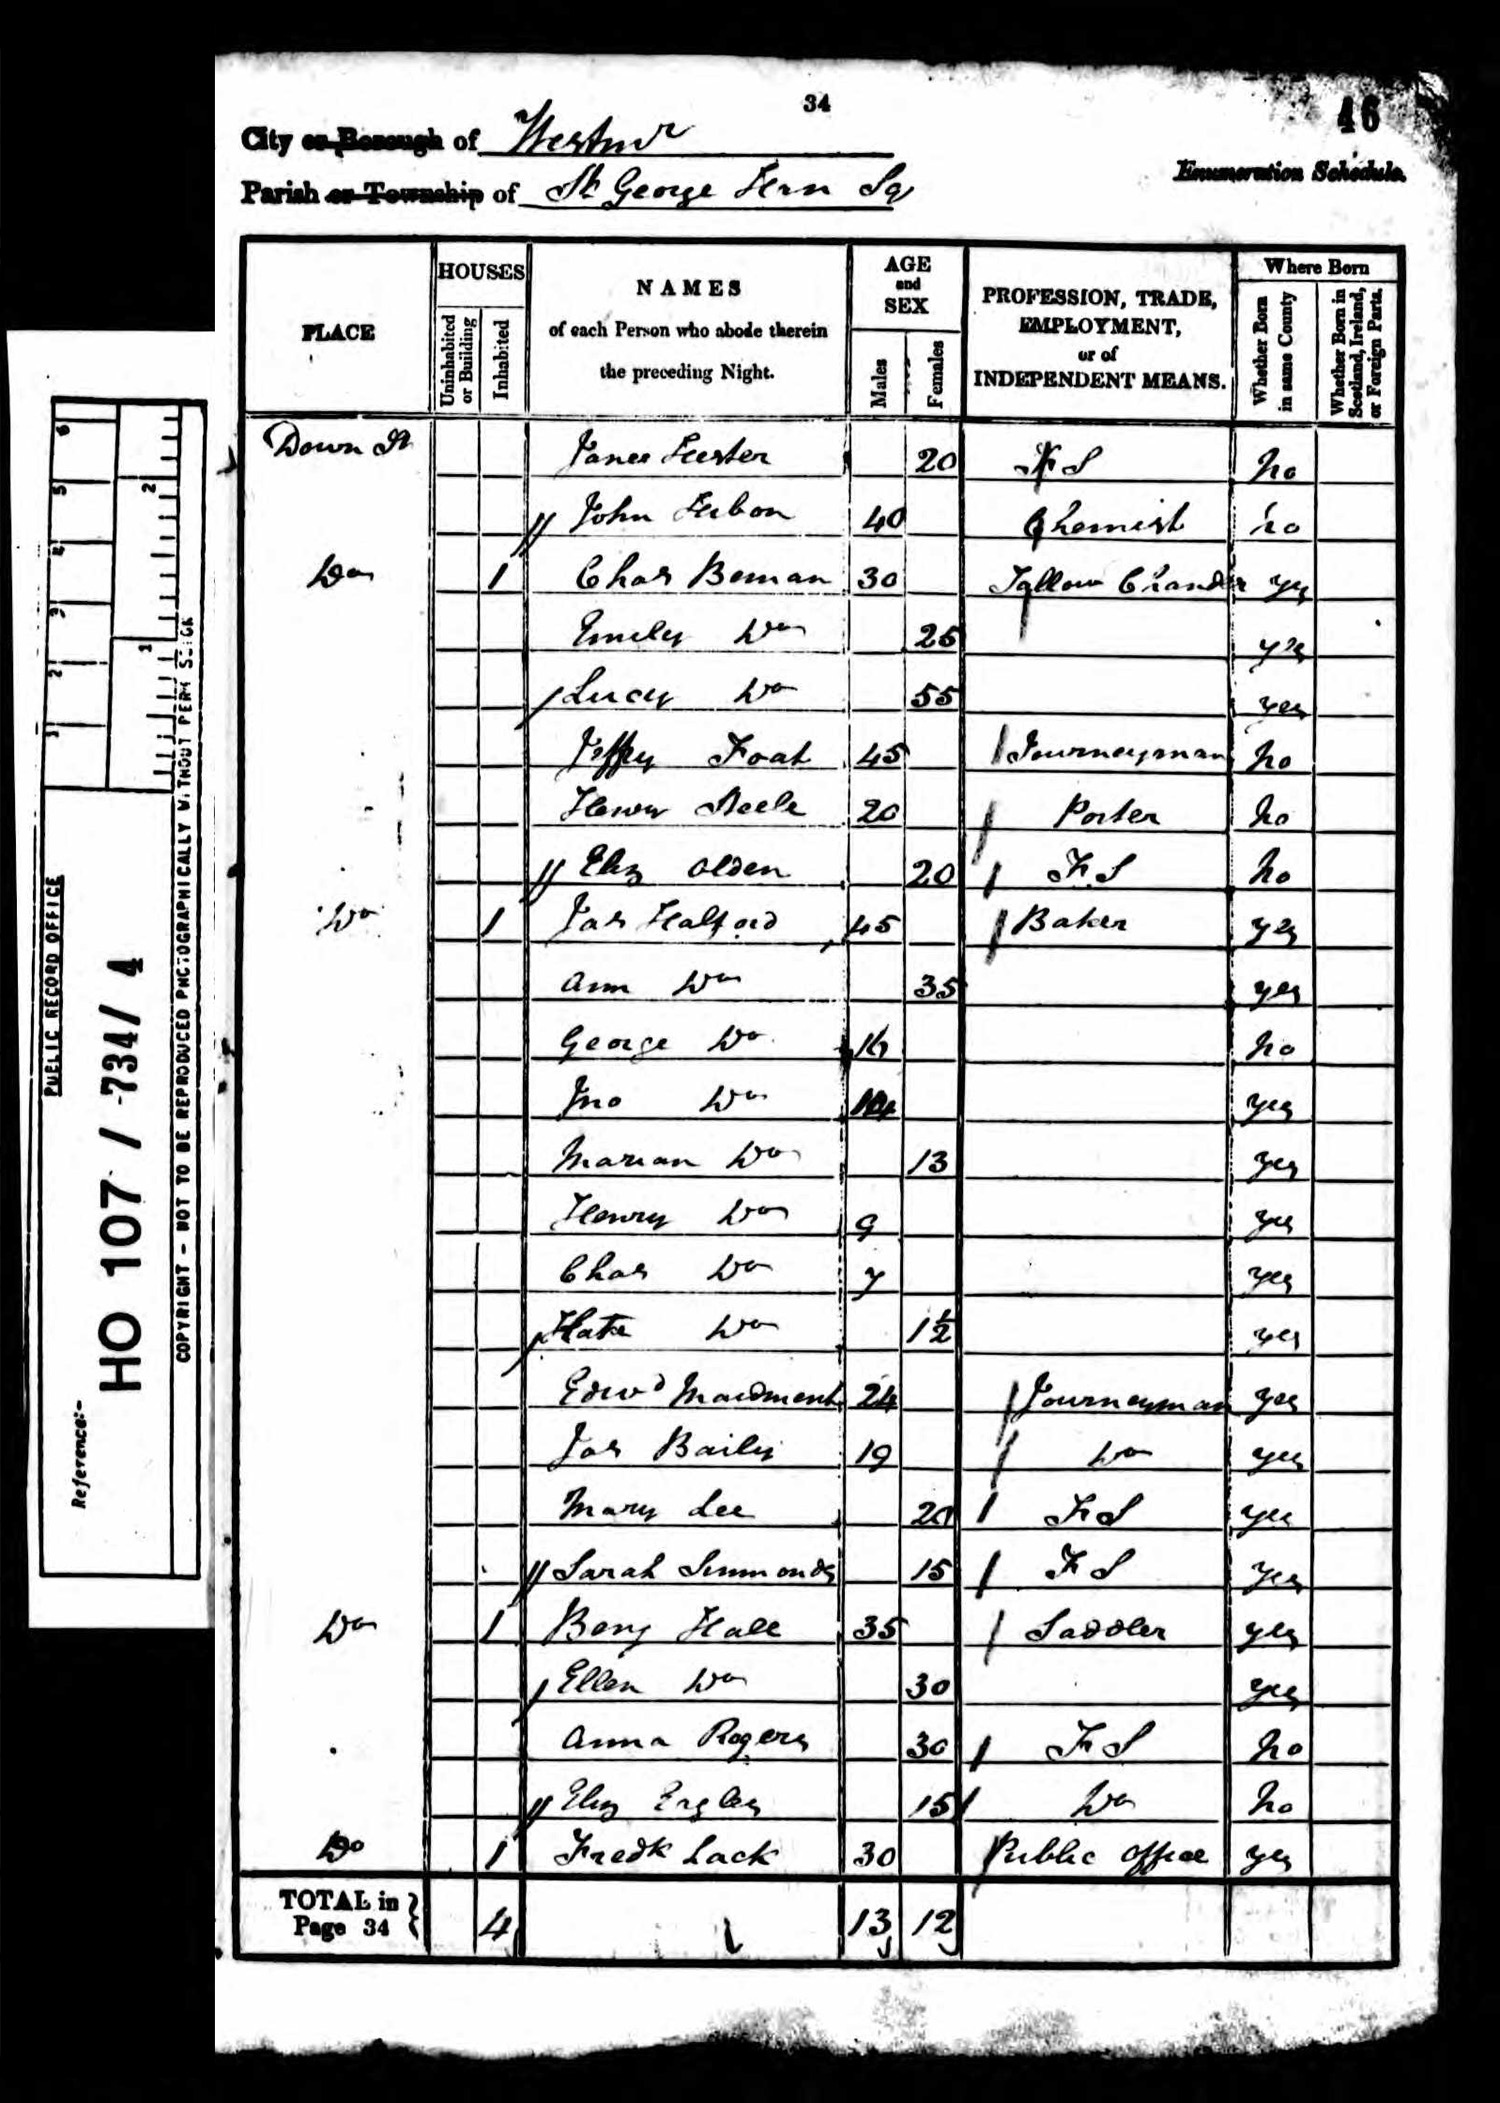 34
46
City or Borough of Westmr
Enumeration Schedule.
Parish or Township of St George Han Sq
PLACE
HOUSES
Uninhabited or Building
Inhabited
NAMES
of each Person who abode therein
the preceding Night.
AGE
and
SEX
Males
Females
PROFESSION, TRADE,
EMPLOYMENT,
or of
INDEPENDENT MEANS.
Where Born
Whether Born in same County
Whether Born in Scotland, Ireland, or Foreign Parts.
Down St Jane 20 F S no
// John 40 Chemist no
Do 1 Chas Beman 30 Tallow Chandr yes
Emily Do 25 yes
/ Lucy Do 55 yes
Jeffry Foat 45 Journeyman no
Henry Steele 20 Porter no
// Eliz Olden 20 F.S no
Do 1 Jas Halford 45 Baker yes
Ann Do 35 yes
George Do no
Jno Do 14 yes
Marian Do 13 yes
Henry Do 9 yes
Chas Do 7 yes
/ Kate Do 1½ yes
Edwd Maidment 24 Journeyman yes
Jas Baily 19 Do yes
Mary Lee 20 F S yes
// Sarah Simmonds 15 F S yes
Do 1 Benj Hall 35 Saddler yes
/ Ellen Do 30 yes
Anna Rogers 30 F S no
// Eliz 15 Do no
Do 1 Fredk Lack 30 Public Office yes
TOTAL in
Page 34 } 4 13 12
6 5 4 3 2 1
2 1
PUBLIC RECORD OFFICE
Reference:-
HO 107 / 734/ 4
COPYRIGHT - NOT TO BE REPRODUCED PHOTOGRAPHICALLY WITHOUT PERMISSION